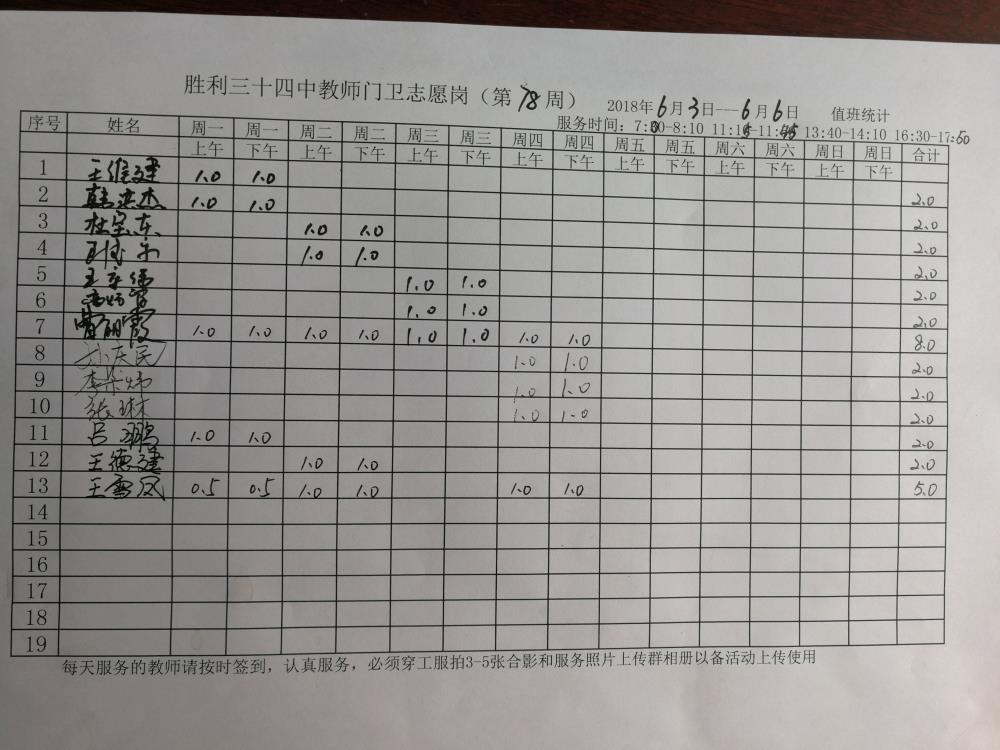 胜利三十四中教师门卫志愿岗（第78周） 2018年6月3日---6月6日 值班统计
服务时间：7:30-8:10 11:15-11:45 13:40-14:10 16:30-17:50
序号 姓名 周一 周一 周二 周二 周三 周三 周四 周四 周五 周五 周六 周六 周日 周日 合计
上午 下午 上午 下午 上午 下午 上午 下午 上午 下午 上午 下午 上午 下午
1 王维建 1.0 1.0 2.0
2 韩洪杰 1.0 1.0 2.0
3 杜宝东 1.0 1.0 2.0
4 1.0 1.0 2.0
5 王 1.0 1.0 2.0
6 1.0 1.0 2.0
7 曹丽霞 1.0 1.0 1.0 1.0 1.0 1.0 1.0 1.0 8.0
8 孙庆民 1.0 1.0 2.0
9 李荣炜 1.0 1.0 2.0
10 张琳 1.0 1.0 2.0
11 吕鹏 1.0 1.0 2.0
12 王德建 1.0 1.0 2.0
13 王雪凤 0.5 0.5 1.0 1.0 1.0 1.0 5.0
14
15
16
17
18
19
每天服务的教师请按时签到，认真服务，必须穿工服拍3-5张合影和服务照片上传群相册以备活动上传使用